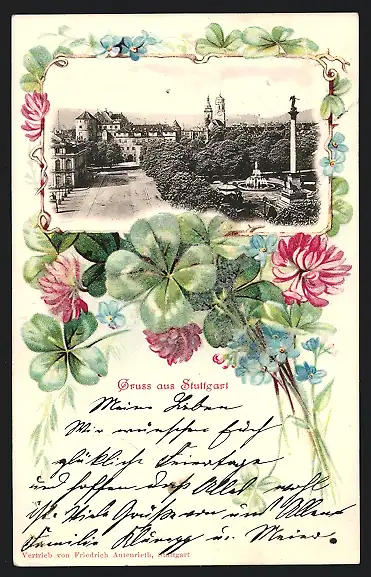 Gruss aus Stuttgart
Meine Lieben
Wir wünschen Euch
glückliche Feiertage
und hoffen daß Alles wohl
ist. Viele Grüße von uns Allen
Familie u.
Vertrieb von Friedrich Autenrieth, Stuttgart